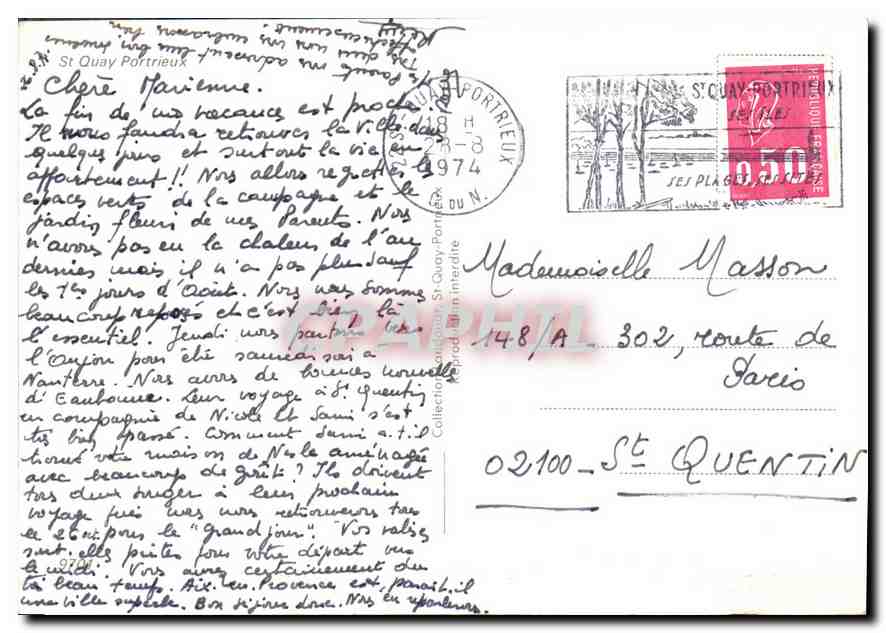 St Quay Portrieux
Chère Marienne.
La fin de nos vacances est proche.
Il nous faudra retrouver la ville dans
quelques jours et surtout la vie en
appartement!! Nous allons regretter les
espaces verts de la campagne et le
jardin fleuri de mes Parents. Nous
n'avons pas eu la chaleur de l'an
dernier mais il n'a pas plu sauf
les 1ers jours d'Août. Nous nous sommes
beaucoup reposés et c'est bien là
l'essentiel. Jeudi nous partons vers
l'Anjou pour été samedi soir à
Nanterre. Nous avons de bonnes nouvelles
d'Eaubonne. Leur voyage à St Quentin
en compagnie de Nicole et Sami s'est
très bien passé. Comment Sami a-t-il
trouvé votre maison de Nesle aménagée
avec beaucoup de goût? Ils doivent
tous deux songer à leur prochain
voyage puis nous nous retrouverons tous
le 26 pour le "grand jour". Vos valises
sont-elles prêtes pour votre départ vers
le midi. Vous aurez certainement du
très beau temps. Aix-en-Provence est, paraît-il
une ville superbe. Bon séjour donc. Nous en reparlerons.
9701
Collections Gaudourt, St-Quay-Portrieux
Reproduction interdite
ST-QUAY-PORTRIEUX
18 H
1974
C. DU N.
ST QUAY-PORTRIEUX
SES ILES
SES PLAGES, SES SITES
REPUBLIQUE FRANÇAISE
0,50
CPAPHIL
Mademoiselle Masson
148/A - 302, route de
Paris
02100 - St QUENTIN